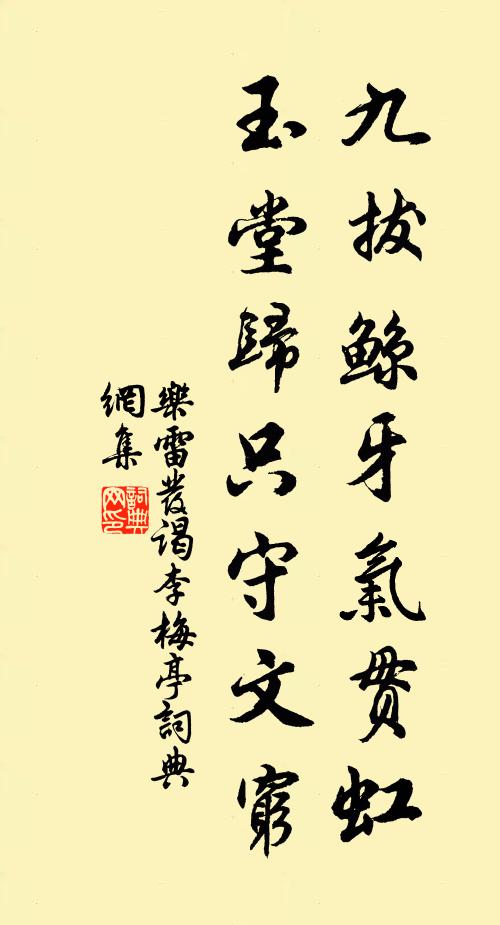 九拔鯨牙氣貫虹
玉堂歸只守文窮
樂雷發謁李梅亭詞典
網集
詞典
网印